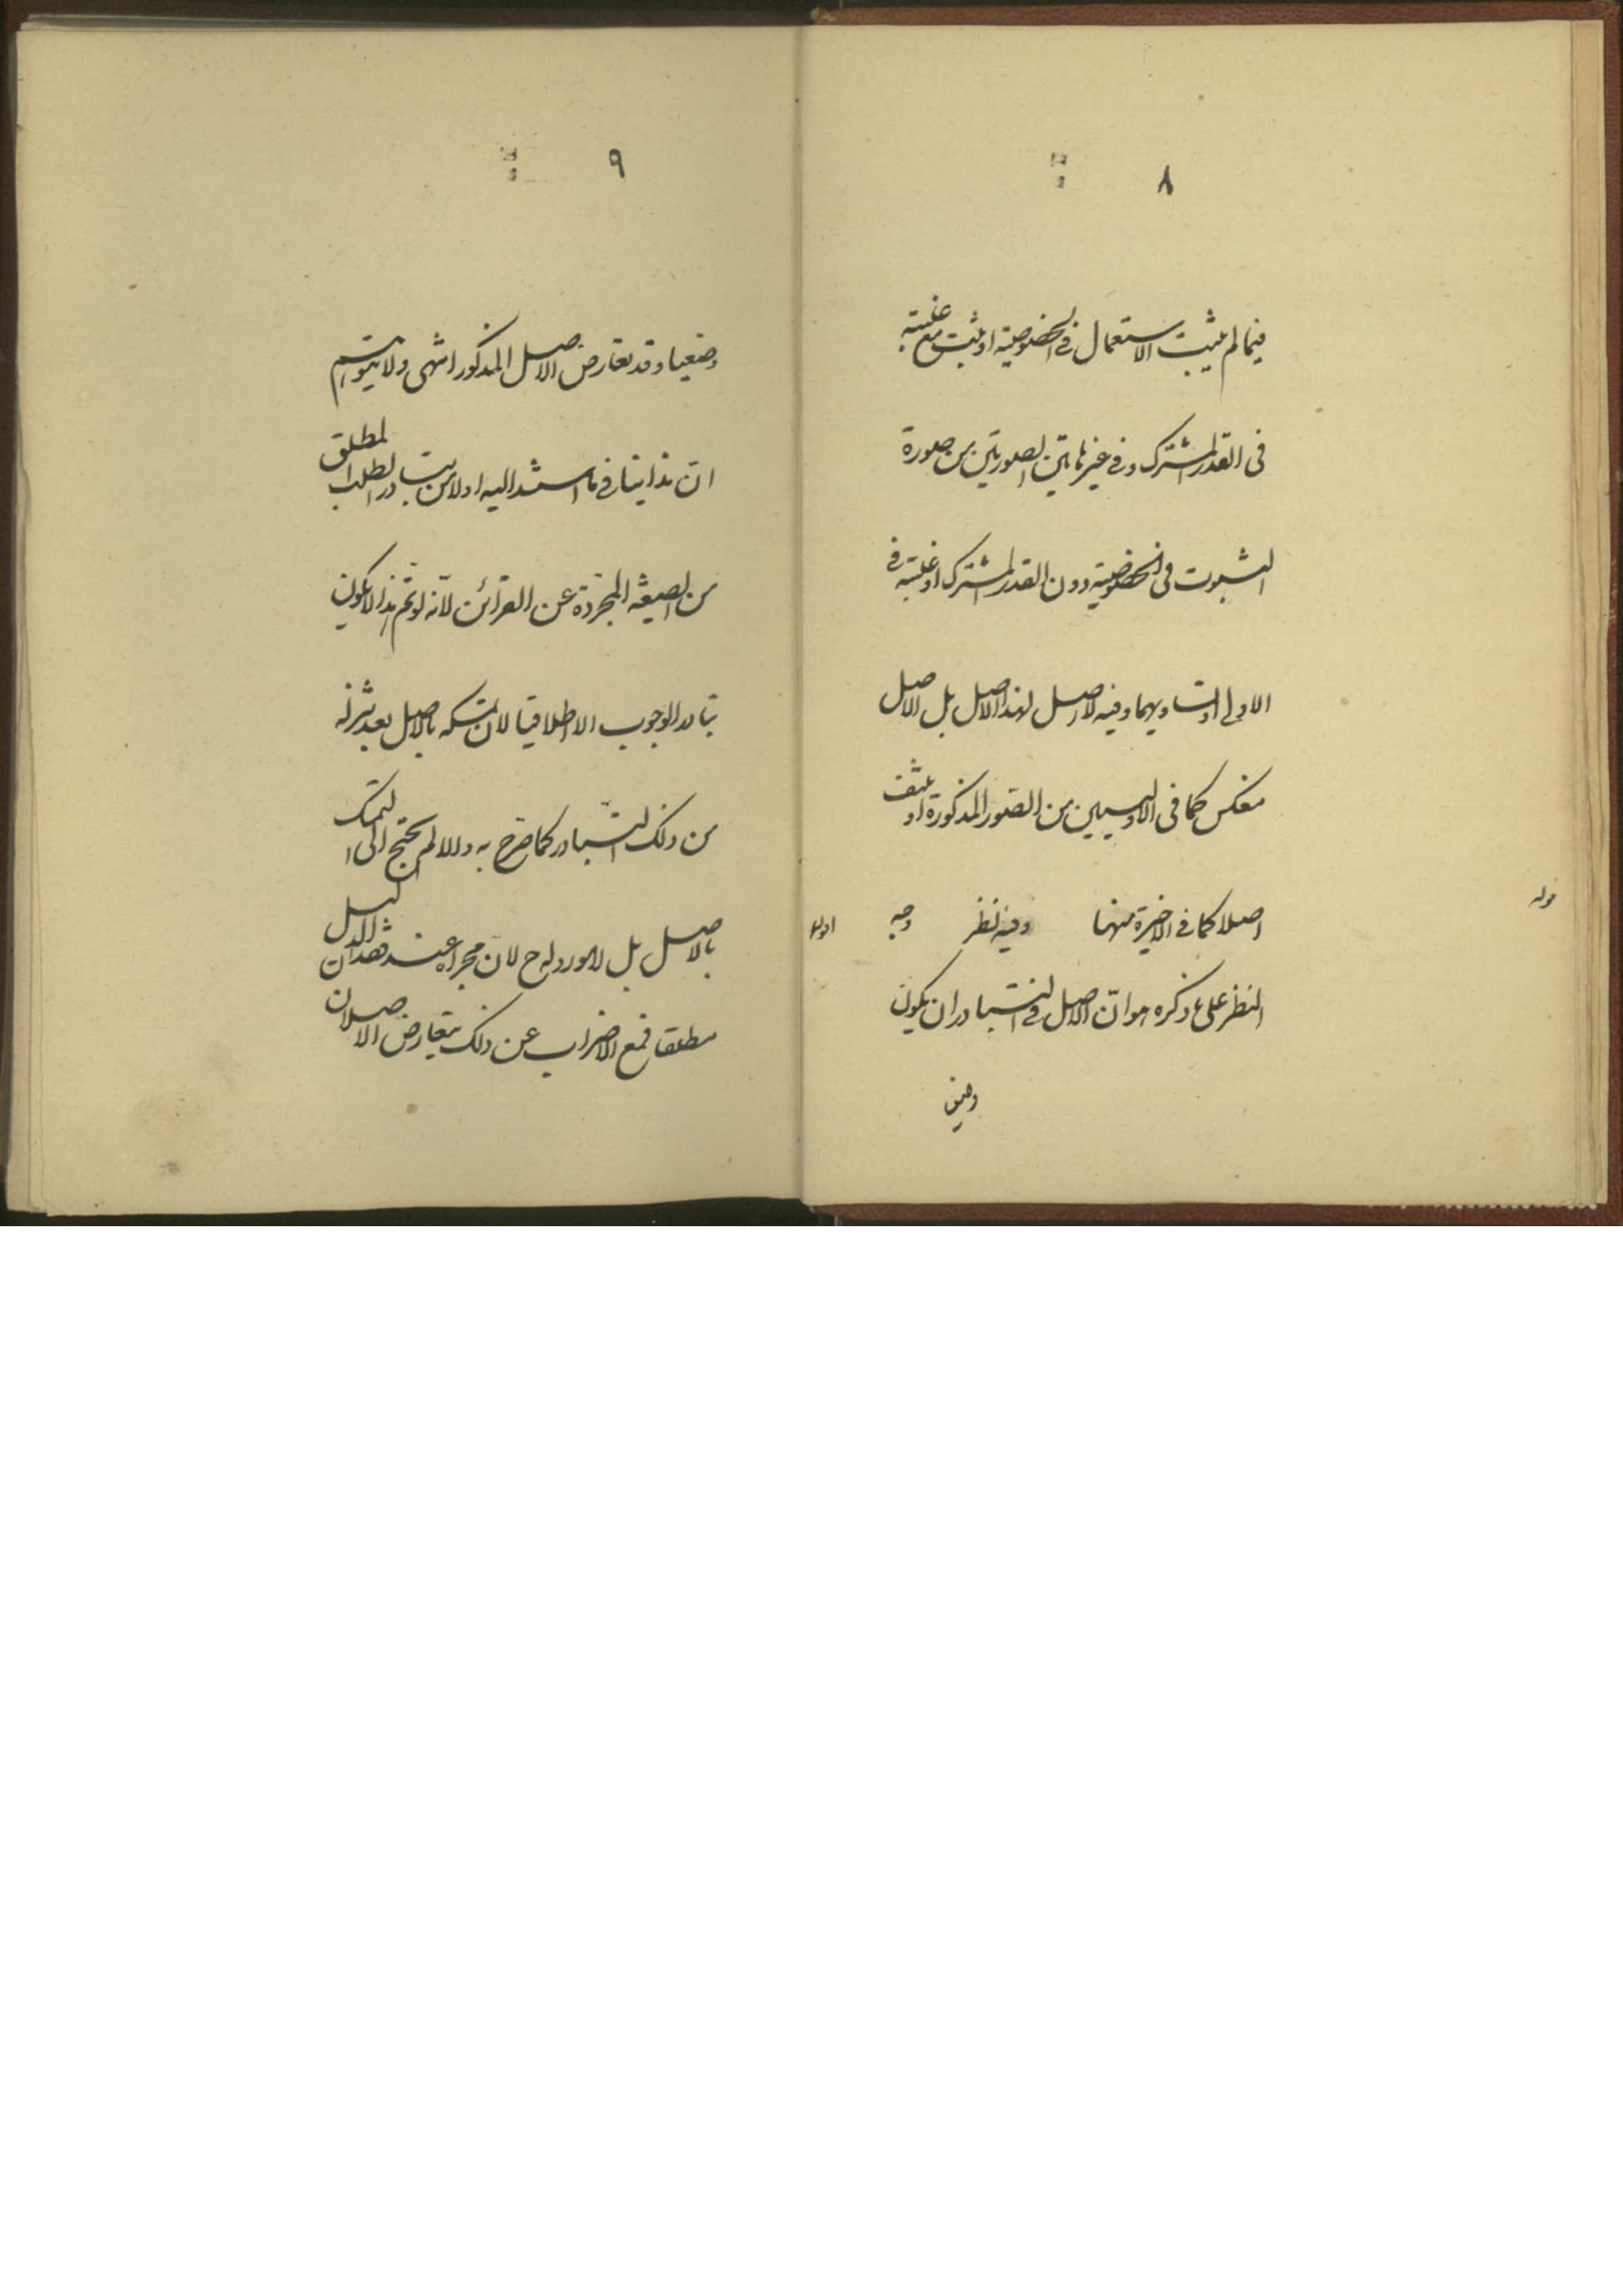 ٨
فيما لم يثبت الاستعمال في الخصوصية او يثبت مع غلبته
في القدر المشترك و في غير هاتين الصورتين من صورة
الثبوت في الخصوصية دون القدر المشترك او غلبته في
الاولى او تساويهما و فيه لا اصل لهذا الاصل بل الاصل
منعكس كما في الاوليين من الصور المذكورة او
اصلا كما في الاخيرة منهما و فيه نظر وجه
قوله
النظر على ما ذكره هو انّ الاصل في التبادر ان يكون
وضعيا
٩
وضعيا و قد تعارض الاصل المذكور انتهى و لا يتوهم
انّ هذا ينافي ما استند اليه اولا من تبادر الطلب المطلق
من الصيغة المجردة عن القرائن لانّه لو تم هذا لا يكون
تبادر الوجوب الا اطلاقيا لان تمسكه بالاصل بعد تنزله
من ذلك التبادر كما صرح به و الا لم يحتج الى التمسك
بالاصل بل لا مورد له ح لان مجراه عند فقدان الدليل
مطلقا فمع الاضراب عن ذلك يتعارض الاصلان